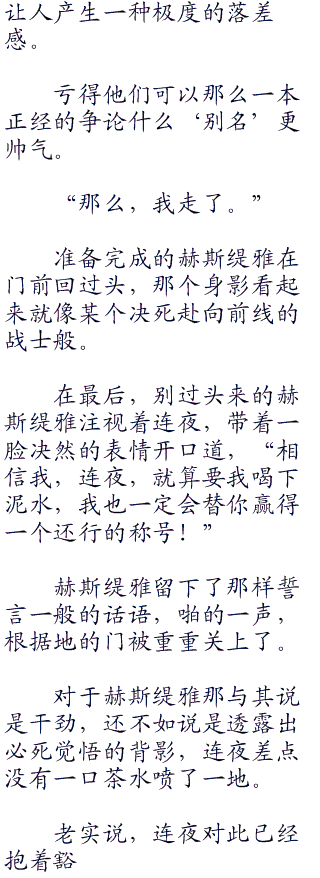 让人产生一种极度的落差
感。
亏得他们可以那么一本
正经的争论什么‘别名’更
帅气。
“那么，我走了。”
准备完成的赫斯缇雅在
门前回过头，那个身影看起
来就像某个决死赴向前线的
战士般。
在最后，别过头来的赫
斯缇雅注视着连夜，带着一
脸决然的表情开口道，“相
信我，连夜，就算要我喝下
泥水，我也一定会替你赢得
一个还行的称号！”
赫斯缇雅留下了那样誓
言一般的话语，啪的一声，
根据地的门被重重关上了。
对于赫斯缇雅那与其说
是干劲，还不如说是透露出
必死觉悟的背影，连夜差点
没有一口茶水喷了一地。
老实说，连夜对此已经
抱着豁